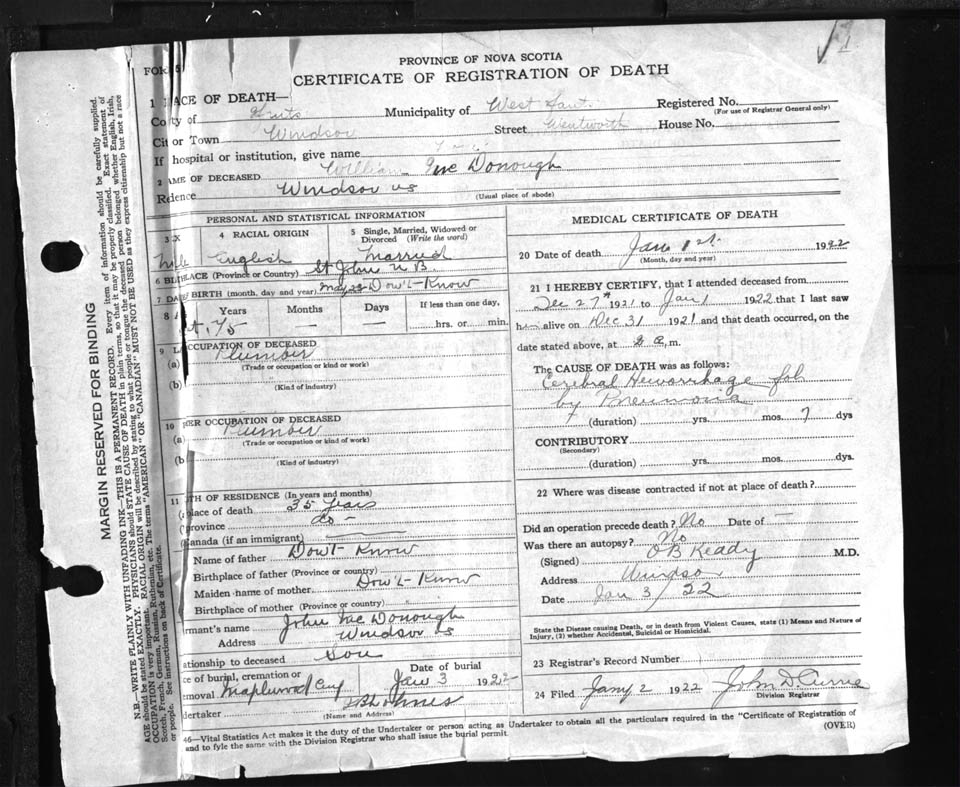 PROVINCE OF NOVA SCOTIA
CERTIFICATE OF REGISTRATION OF DEATH
1 ACE OF DEATH—
Co ty of Hants Municipality of West Hants Registered No.
(For use of Registrar General only)
Cit or Town Windsor Street Wentworth House No.
If hospital or institution, give name
2 AME OF DECEASED William Mc Donough
Re dence Windsor NS
(Usual place of abode)
PERSONAL AND STATISTICAL INFORMATION
3 X 4 RACIAL ORIGIN 5 Single, Married, Widowed or Divorced (Write the word)
Male English Married
6 BIRTHLACE (Province or Country) St John N.B.
7 DA BIRTH (month, day and year) May 23 Dow'l-Know
8 Years Months Days If less than one day,
75 — — hrs. or min.
9 L OCCUPATION OF DECEASED
(a) Plumber
(Trade or occupation or kind or work)
(b)
(Kind of industry)
10 ER OCCUPATION OF DECEASED
(a) Plumber
(Trade or occupation or kind of work)
(b
(Kind of industry)
11 TH OF RESIDENCE (In years and months)
place of death 35 Years
province do -
Canada (if an immigrant)
Name of father Dow't-Know
Birthplace of father (Province or country)
Maiden name of mother Dow'l-Know
Birthplace of mother (Province or country)
rmant's name John Mc Donough
Address Windsor NS
ationship to deceased Son
ce of burial, cremation or Date of burial
moval Maplewood Cmy Jan 3 1922
dertaker Holmes
(Name and Address)
MEDICAL CERTIFICATE OF DEATH
20 Date of death Jan 1st. 1922
(Month, day and year)
21 I HEREBY CERTIFY, that I attended deceased from
Dec 27th 1921 to Jan 1 1922 that I last saw
him alive on Dec 31 1921 and that death occurred, on the
date stated above, at a, m.
The CAUSE OF DEATH was as follows:
Cerebral Hemorrhage fol
by Pneumonia
(duration) yrs. mos. 7 dys
CONTRIBUTORY
(Secondary)
(duration) yrs. mos. dys
22 Where was disease contracted if not at place of death?
Did an operation precede death? No Date of —
Was there an autopsy? No
(Signed) O B Keddy M.D.
Address Windsor
Date Jan 3/22
State the Disease causing Death, or in death from Violent Causes, state (1) Means and Nature of
Injury, (2) whether Accidental, Suicidal or Homicidal.
23 Registrar's Record Number
24 Filed Jany 2 1922 John D Currie
Division Registrar
46—Vital Statistics Act makes it the duty of the Undertaker or person acting as Undertaker to obtain all the particulars required in the "Certificate of Registration of
and to fyle the same with the Division Registrar who shall issue the burial permit.
(OVER)
MARGIN RESERVED FOR BINDING
N.B.—WRITE PLAINLY WITH UNFADING INK—THIS IS A PERMANENT RECORD. Every item of information should be carefully supplied.
AGE should be stated EXACTLY. PHYSICIANS should STATE CAUSE OF DEATH in plain terms, so that it may be properly classified. Exact statement of
OCCUPATION is very important. RACIAL ORIGIN will be described by stating to what people or tongue the deceased person belonged whether English, Irish,
Scotch, French, German, Russian, Ruthenian, etc. The terms "AMERICAN" OR "CANADIAN" MUST NOT BE USED as they express citizenship but not a race
or people. See instructions on back of Certificate.